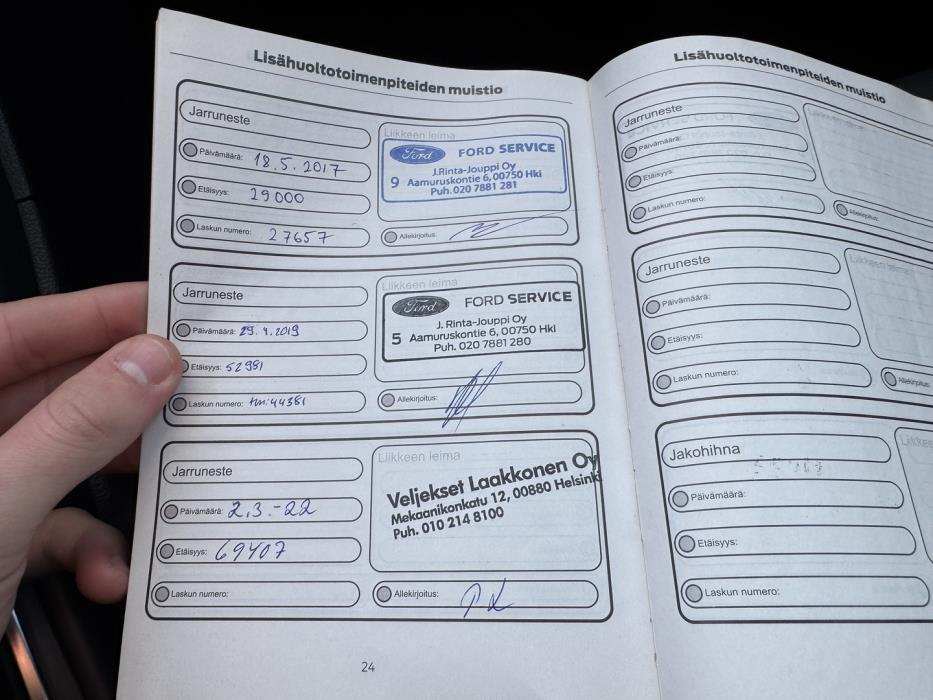 Lisähuoltotoimenpiteiden muistio
Jarruneste
Päivämäärä: 18.5.2017
Etäisyys: 29000
Laskun numero: 27657
Liikkeen leima
Ford FORD SERVICE
J.Rinta-Jouppi Oy
9 Aamuruskontie 6, 00750 Hki
Puh. 020 7881 281
Allekirjoitus:
Jarruneste
Päivämäärä: 29.4.2019
Etäisyys: 52981
Laskun numero: tmi44381
Liikkeen leima
Ford FORD SERVICE
J. Rinta-Jouppi Oy
5 Aamuruskontie 6, 00750 Hki
Puh. 020 7881 280
Allekirjoitus:
Jarruneste
Päivämäärä: 2.3.-22
Etäisyys: 69407
Laskun numero:
Liikkeen leima
Veljekset Laakkonen Oy
Mekaanikonkatu 12, 00880 Helsinki
Puh. 010 214 8100
Allekirjoitus:
24
Lisähuoltotoimenpiteiden muistio
Jarruneste
Päivämäärä:
Etäisyys:
Laskun numero:
Allekirjoitus:
Jarruneste
Päivämäärä:
Etäisyys:
Laskun numero:
Liikkeen
Allekirjoitus:
Jakohihna
Päivämäärä:
Etäisyys:
Laskun numero:
Liikkee